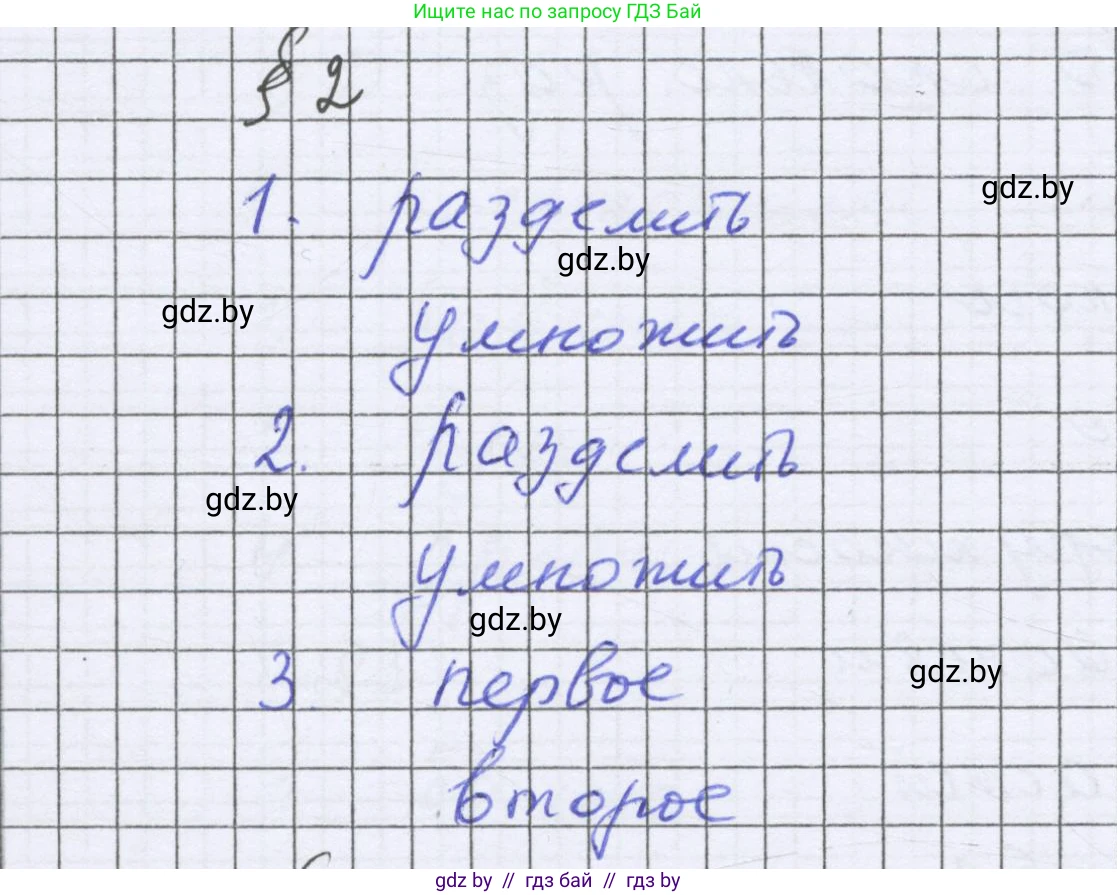 Ищите нас по запросу ГДЗ Бай
§ 2
1. разделить
gdz.by
gdz.by
gdz.by
умножить
2. разделить
gdz.by
умножить
gdz.by
3. первое
gdz.by
второе
gdz by // гдз бай // гдз by